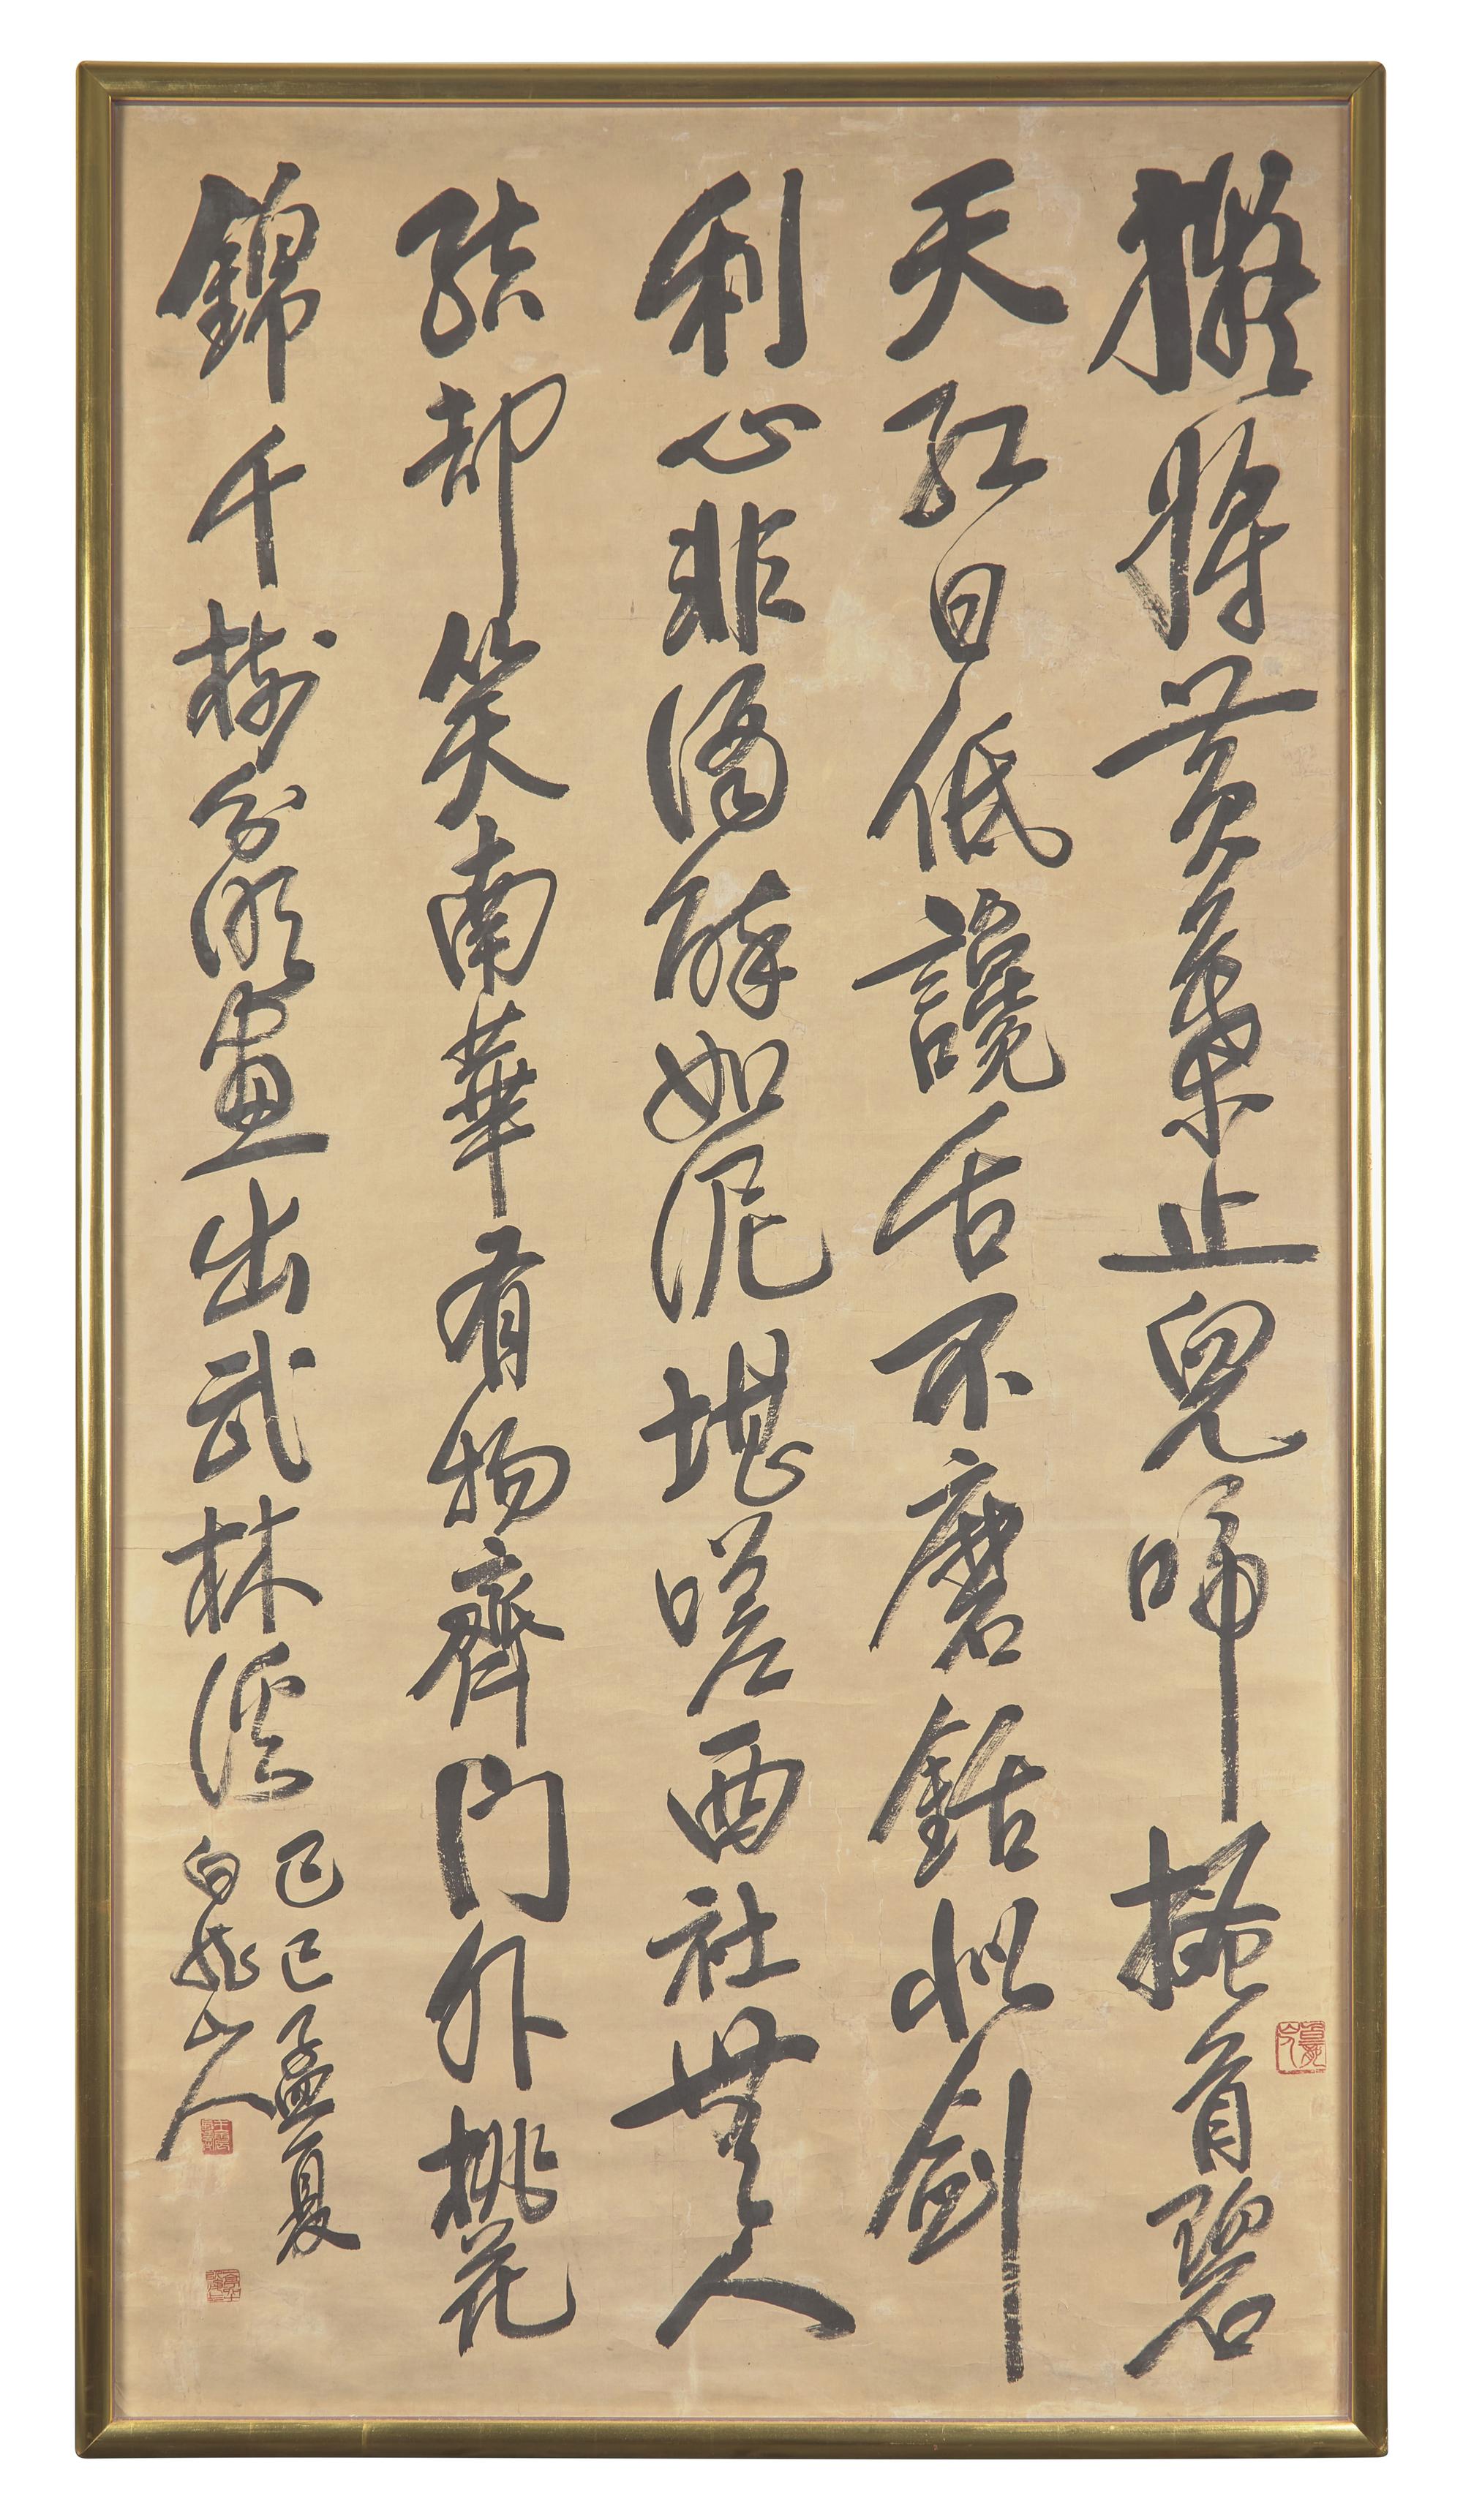 擬將黃葉止兒啼搔首碧
天紅日低讒舌不磨銛似劍
利心非酒醉如泥堪嗟西社無人
結却笑南華有物齊門外桃花
錦千樹分明畫出武林溪
己巳孟夏
白山人